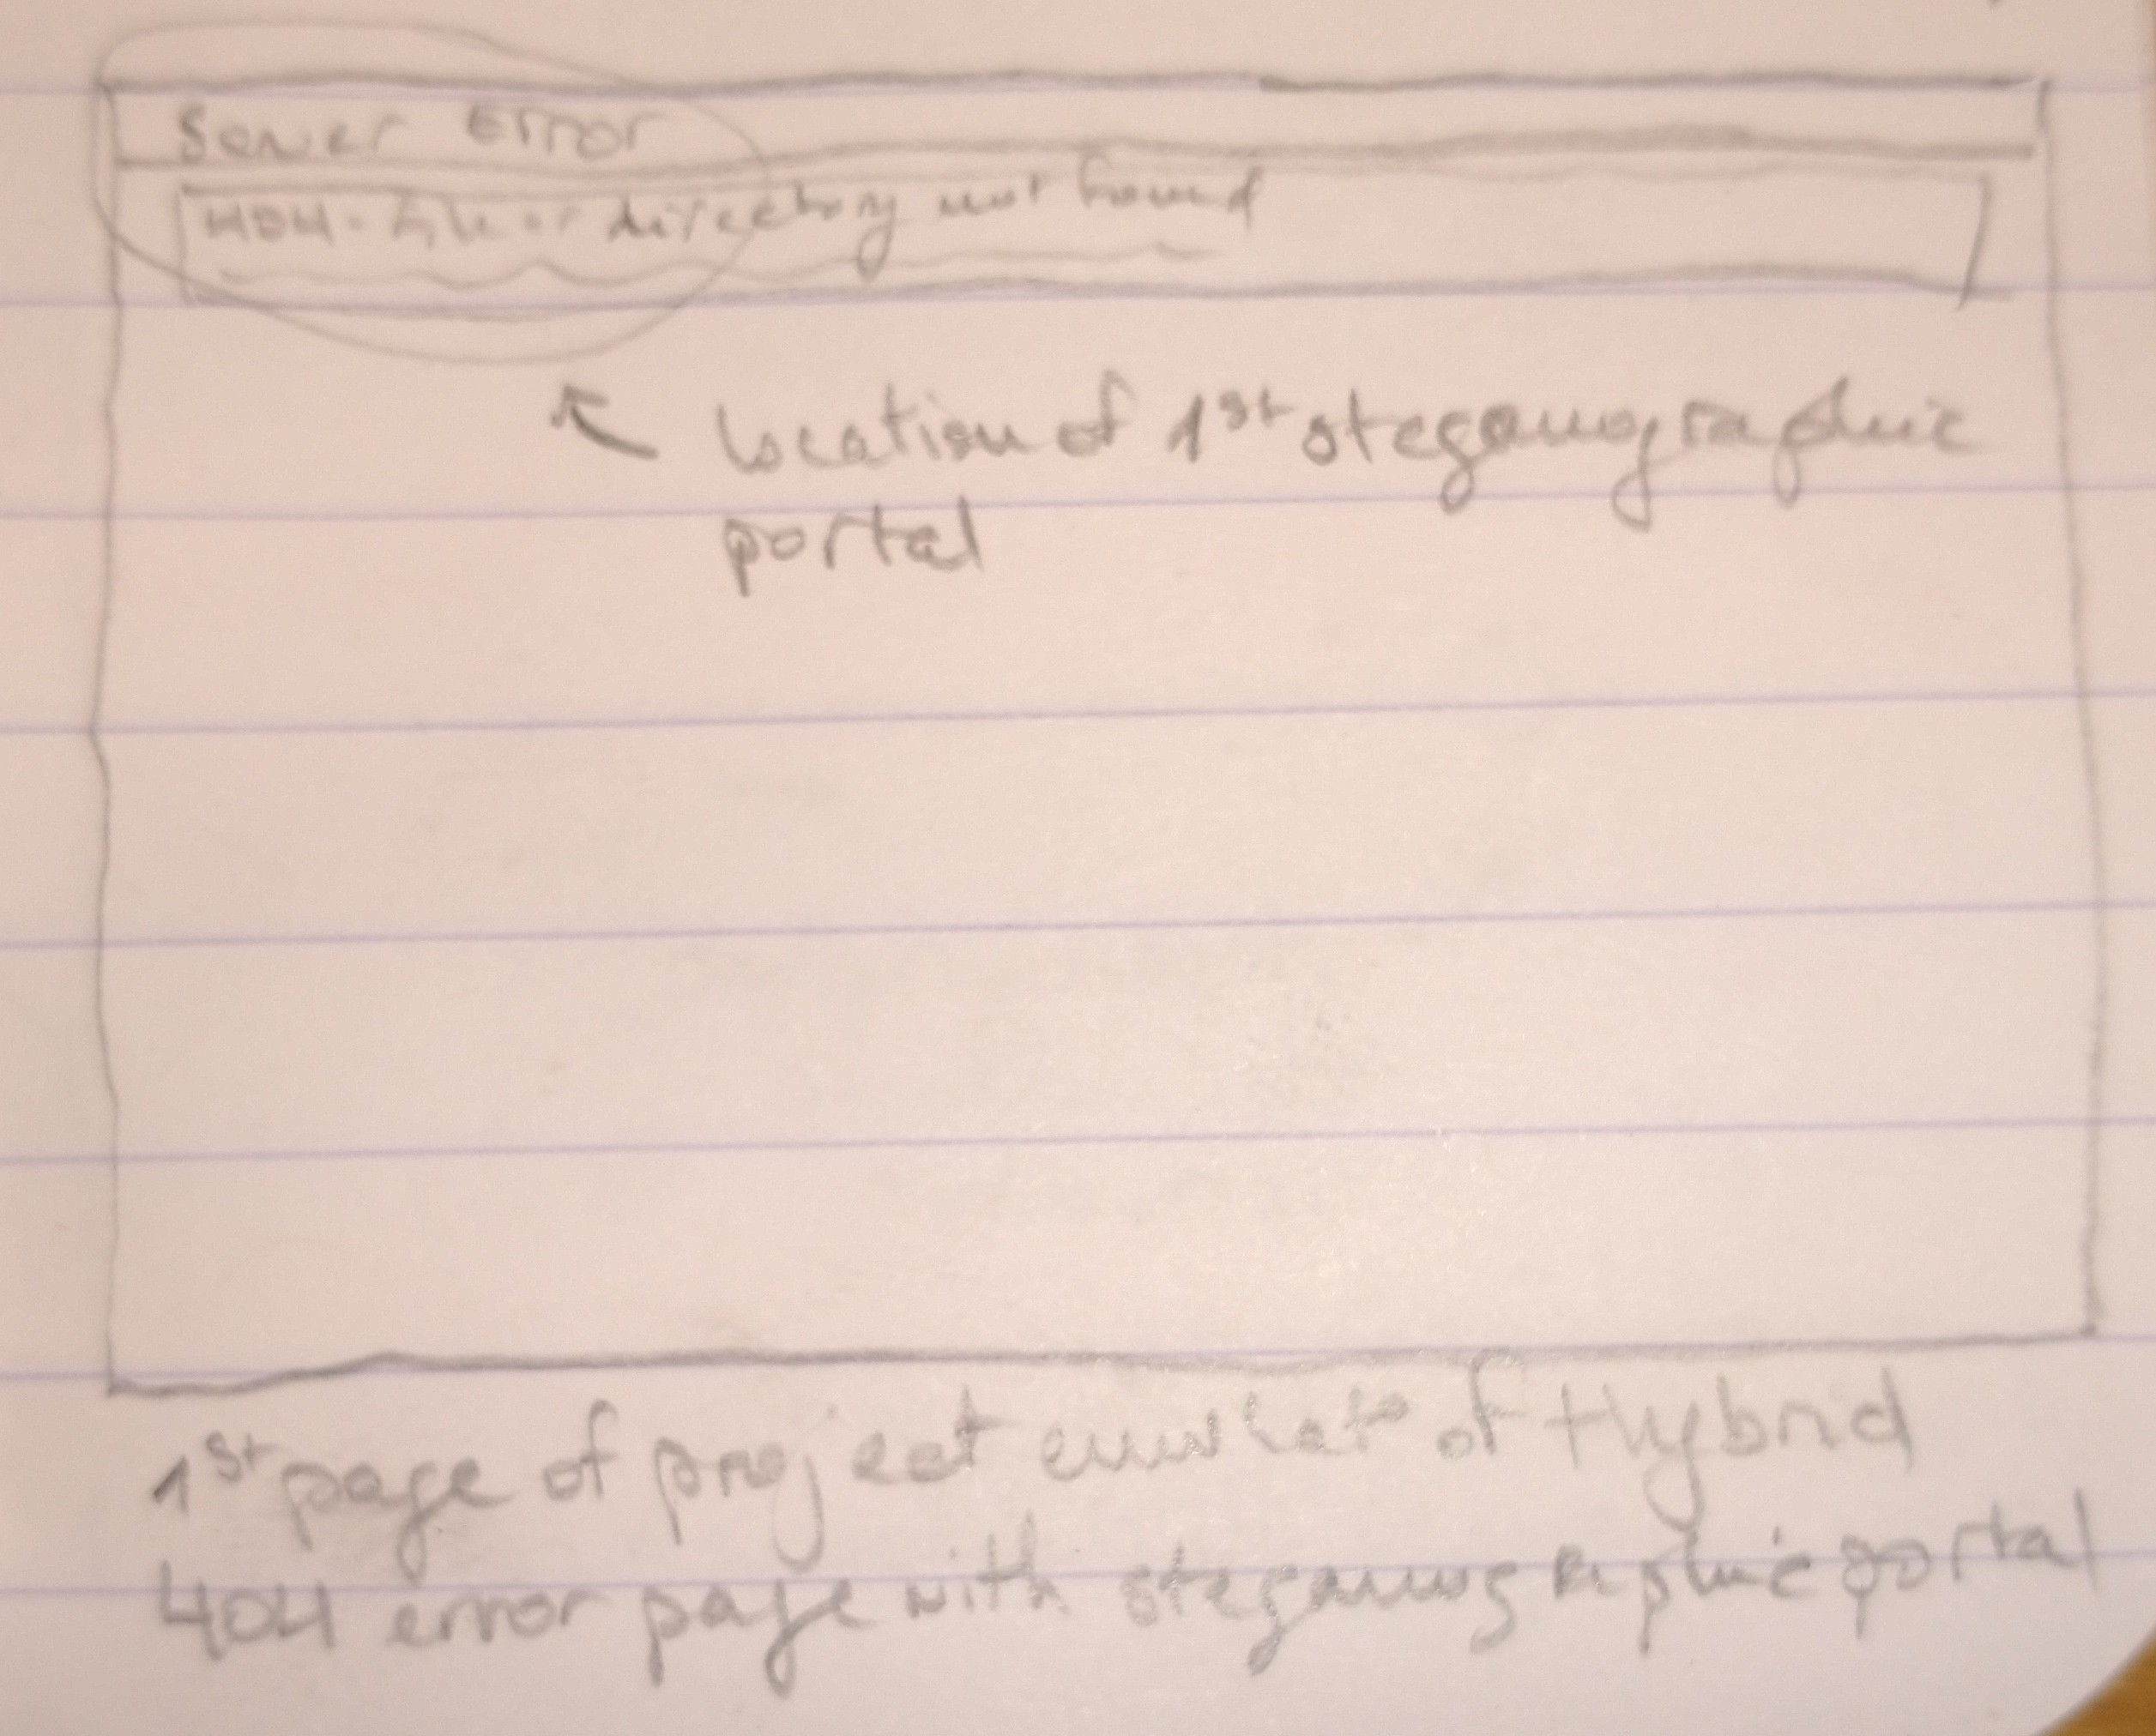 Server Error
404 - File or directory not found
location of 1st steganographic
portal
1st page of project of Hybrid
404 error page with steganographic portal